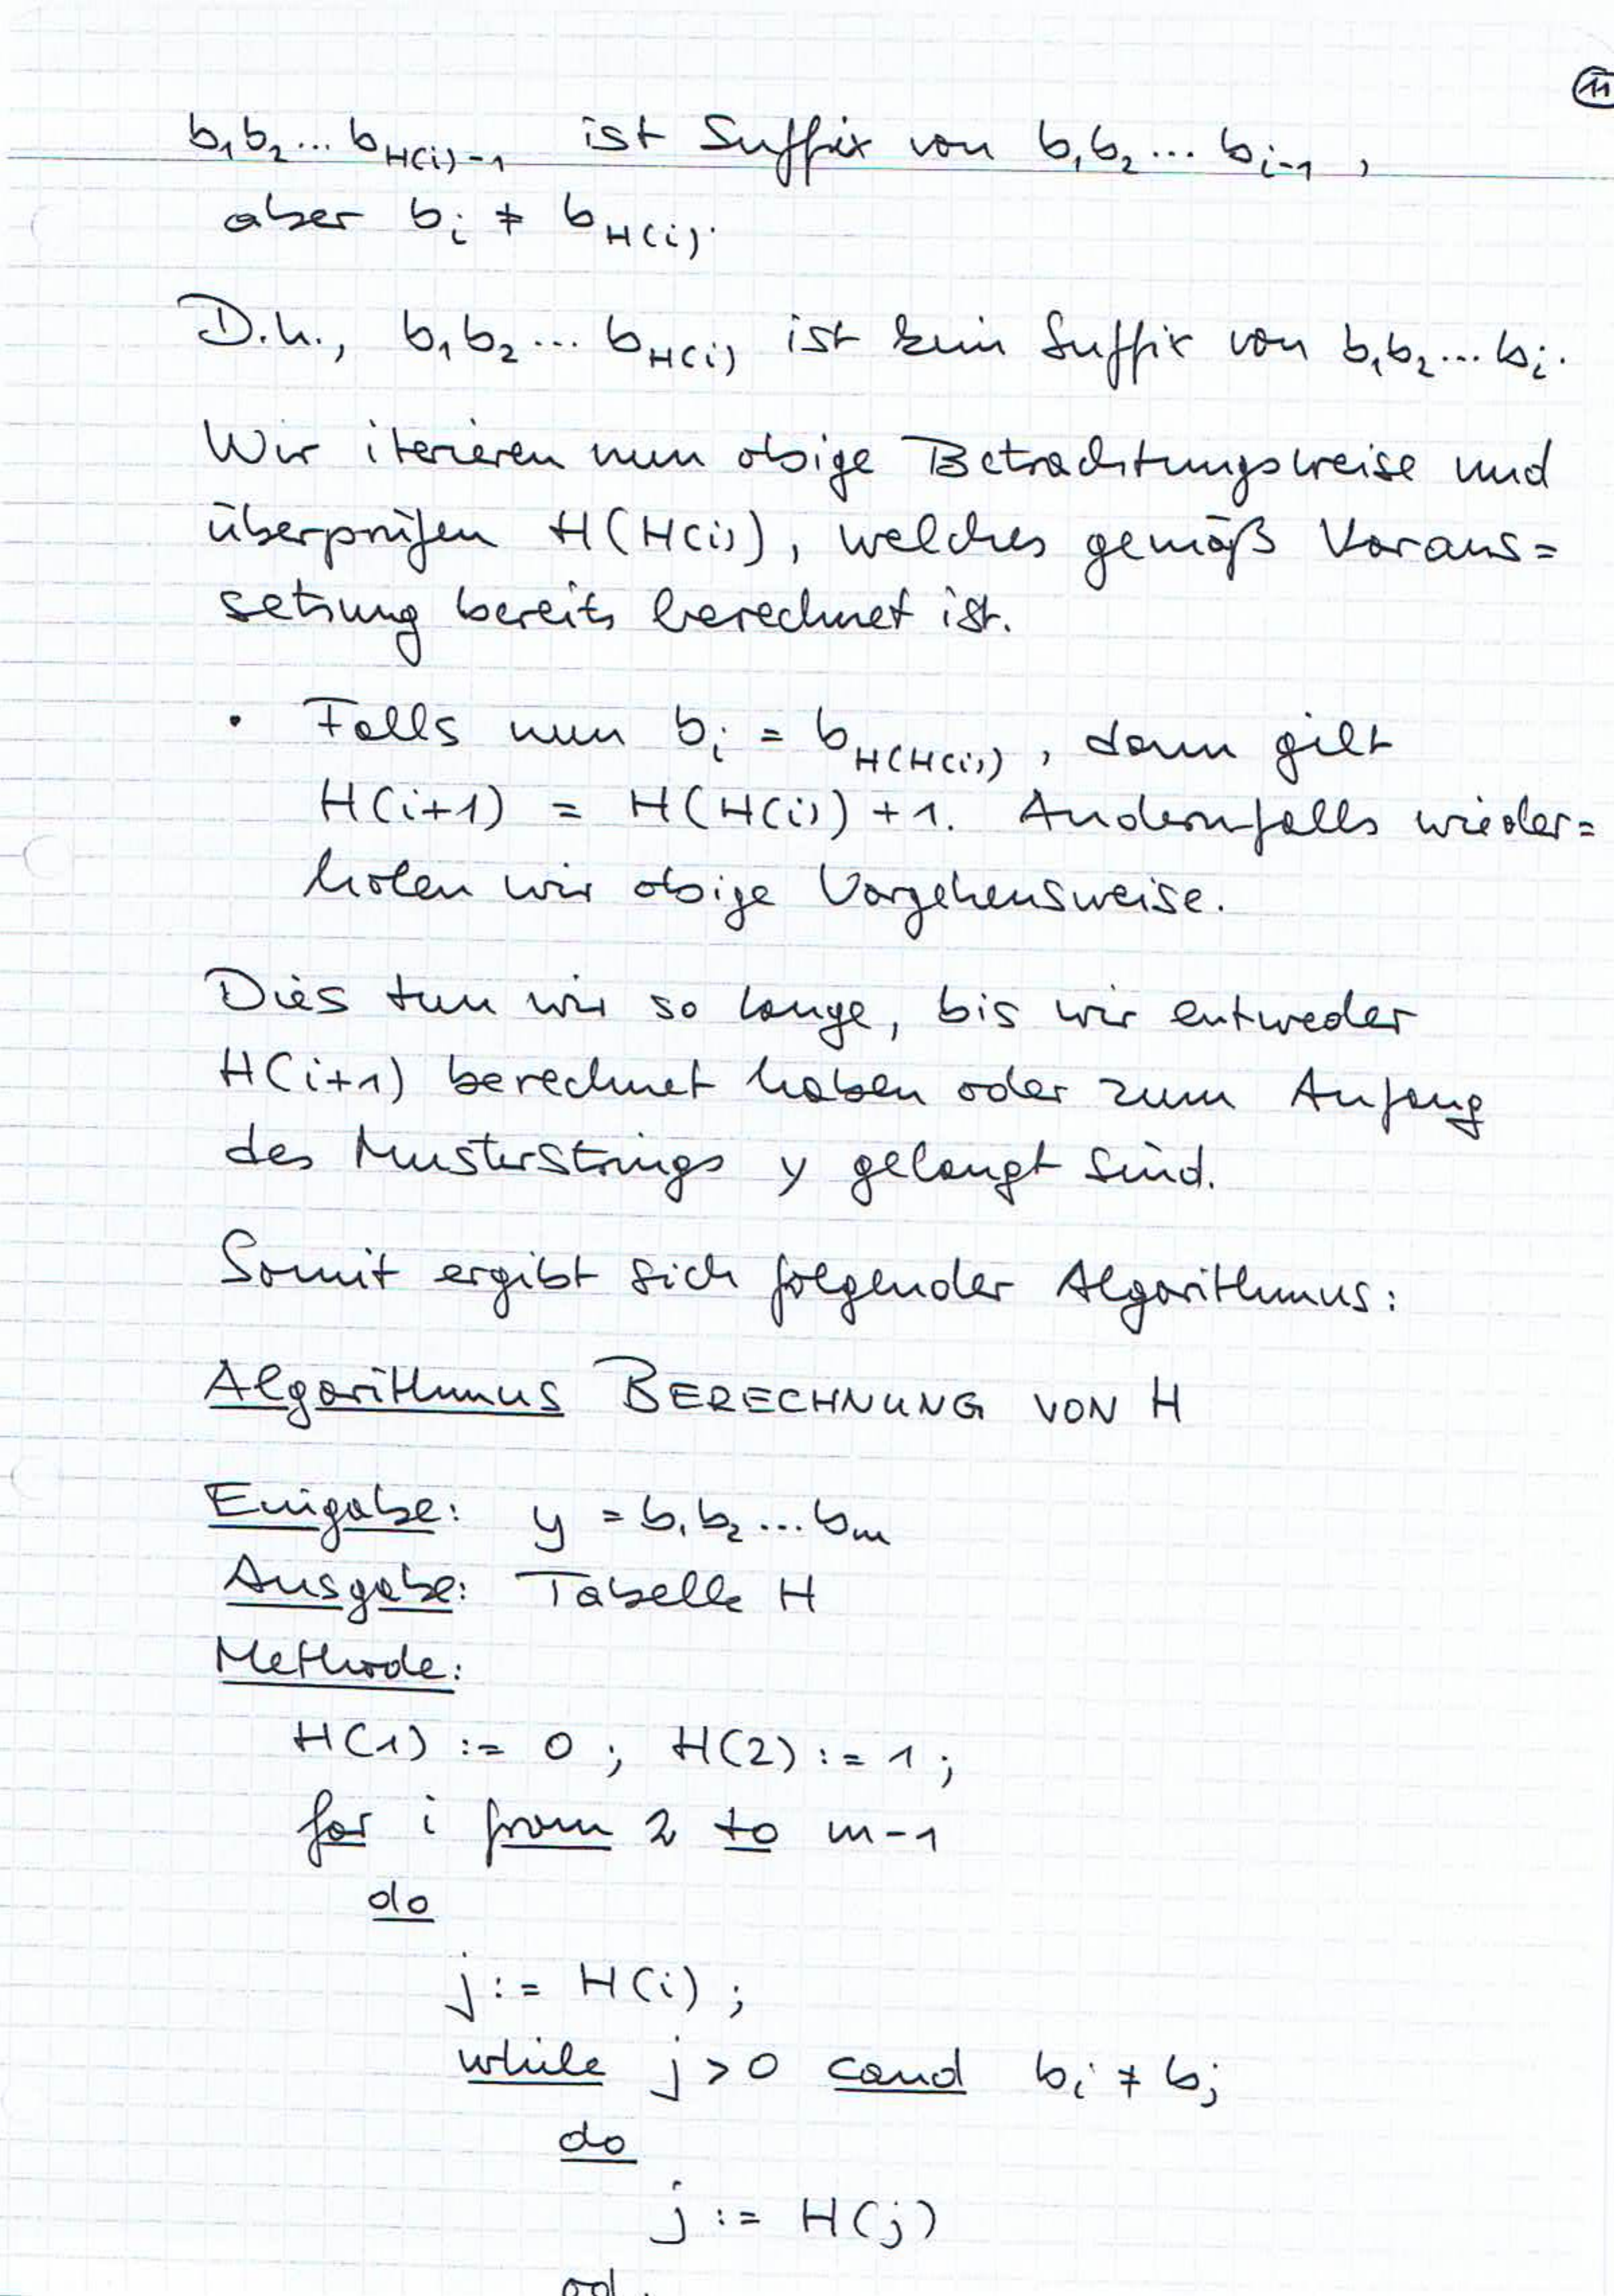 11
b₁b₂...b_{H(i)-1} ist Suffix von b₁b₂...b_{i-1},
aber b_i ≠ b_{H(i)}.
D.h., b₁b₂...b_{H(i)} ist kein Suffix von b₁b₂...b_i.
Wir iterieren nun obige Betrachtungsweise und
überprüfen H(H(i)), welches gemäß Voraus=
setzung bereits berechnet ist.
• Falls nun b_i = b_{H(H(i))}, dann gilt
H(i+1) = H(H(i))+1. Andernfalls wieder=
holen wir obige Vorgehensweise.
Dies tun wir so lange, bis wir entweder
H(i+1) berechnet haben oder zum Anfang
des Musterstrings y gelangt sind.
Somit ergibt sich folgender Algorithmus:
Algorithmus BERECHNUNG VON H
Eingabe: y = b₁b₂...b_m
Ausgabe: Tabelle H
Methode:
H(1) := 0; H(2) := 1;
for i from 2 to m-1
do
j := H(i);
while j > 0 cand b_i ≠ b_j
do
j := H(j)
od